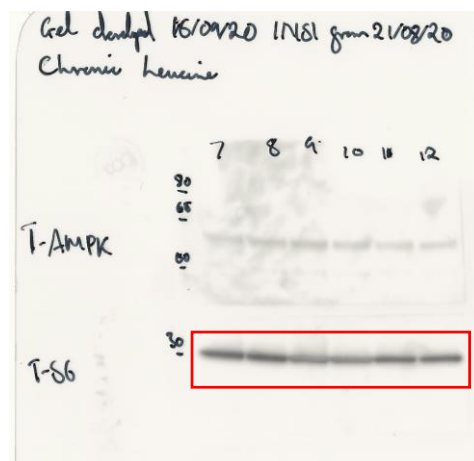 Gel developed 16/09/20 INS1 from 21/08/20
Chronic Leucine
7 8 9 10 11 12
80
65
T-AMPK
50
30
T-S6